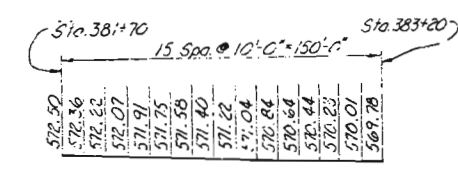 Sta. 381+70
Sta. 383+20
15 Spa. @ 10'-0" = 150'-0"
572.50
572.36
572.22
572.07
571.91
571.75
571.58
571.40
571.22
571.04
570.84
570.64
570.44
570.23
570.01
569.78